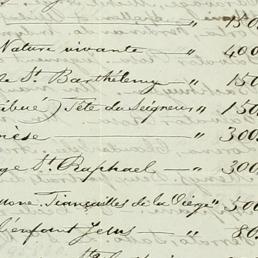 " 150
Nature vivante — " 400
de St. Barthélemy — " 150
tribué) Tête du Seigneur " 150
" 300
ge St. Raphael — " 300
une "Fiançailles de la Vierge" 500
l'enfant Jesus — " 80